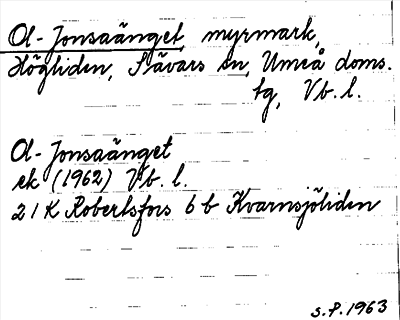 Ol-Jonsaänget, myrmark,
Högliden, Sävars sn, Umeå doms.
tg, Vb. l.
Ol-Jonsaänget
ek (1962) Vb. l.
21K Robertsfors 6b Kvarnsjöliden
S.P. 1963